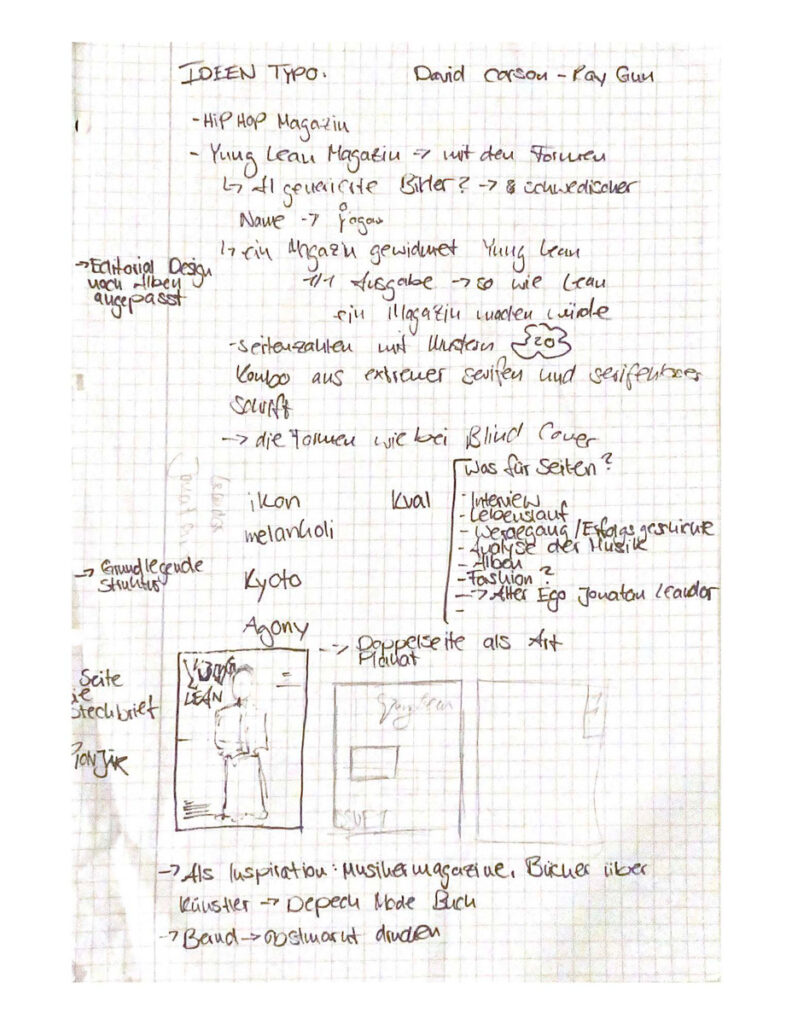 IDEEN TYPO.
David Carson - Ray Gun
- HIP HOP Magazin
- Yung Lean Magazin -> mit den Formen
↳ AI generierte Bilder? -> schwedischer
Name ->
↳ ein Magazin gewidmet Yung Lean
1/1 Ausgabe -> so wie Lean
ein Magazin machen würde
-> Editorial Design
nach Alben
angepasst
- Seitenzahlen mit Mustern 20
Kombo aus extremer serifen und serifenloser
Schrift
-> die Formen wie bei Blind Cover
ikon
melancholi
Kyoto
Agony
Kval
Was für Seiten?
- Interview
- Lebenslauf
- Werdegang / Erfolgsgeschichte
- Analyse der Musik
- Alben
- Fashion?
--> Alter Ego Jonatan Leandor
-
-> Grundlegende
Struktur
--> Doppelseite als Art
Plakat
Seite
Steckbrief
YUNG
LEAN
Yung Lean
-> Als Inspiration: Musikermagazine, Bücher über
Künstler -> Depech Mode Buch
-> Band -> drucken